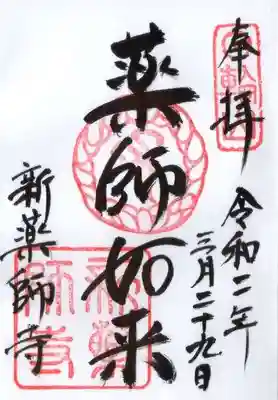 奉拝
令和二年
三月二十九日
薬師如来
新薬師寺